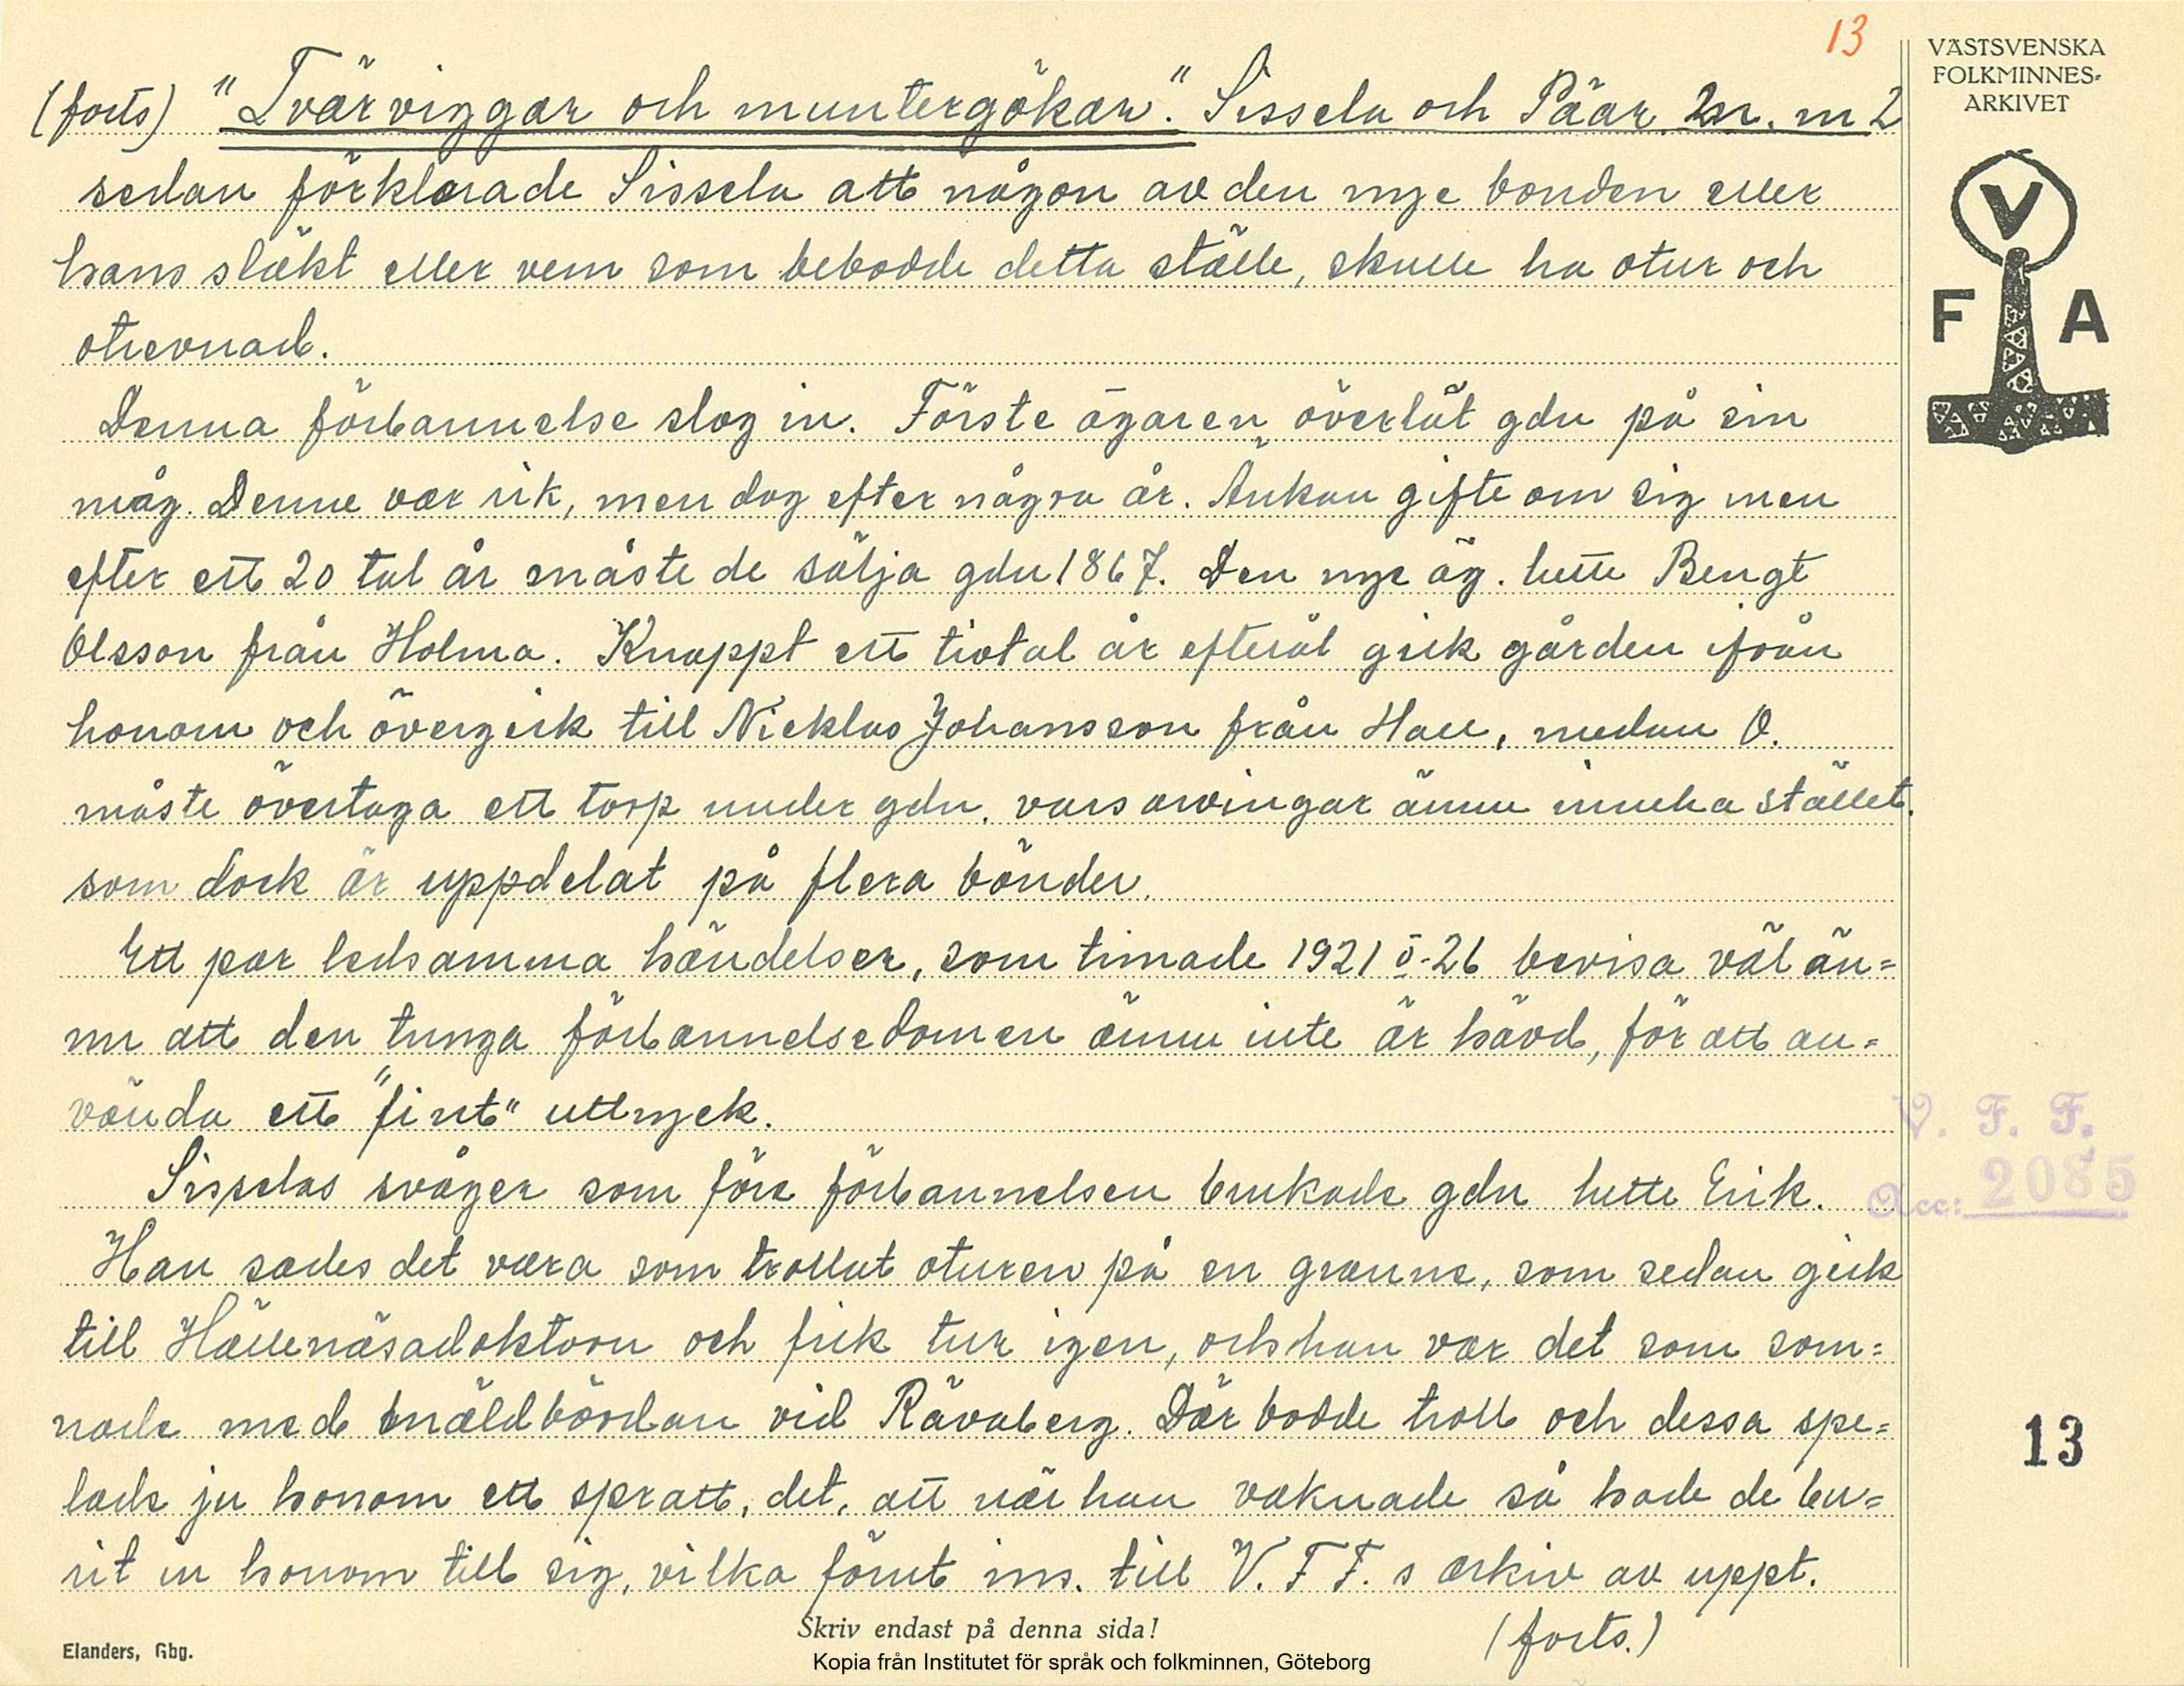 13
VÄSTSVENSKA
FOLKMINNES-
ARKIVET
V
F A
(forts) "Tvärviggar och muntergökar". Sissela och Päär m. m 2
sedan förklarade Sissela att någon av den nye bonden eller
hans släkt eller vem som bebodde detta ställe, skulle ha otur och
otrevnad.
Denna förbannelse slog in. Förste ägaren överlät gdn på sin
måg. Denne var rik, men dog efter några år. Änkan gifte om sig men
efter ett 20 tal år måste de sälja gdn 1867. Den nye äg. hette Bengt
Olsson från Holma. Knappt ett tiotal år efteråt gick gården ifrån
honom och övergick till Nicklas Johansson från Hall, medan O.
måste övertaga ett torp under gdn, vars arvingar ännu inneha stället,
som dock är uppdelat på flera bönder.
Ett par ledsamma händelser, som timade 1921 o-26 bevisa väl än=
nu att den tunga förbannelsedomen ännu inte är hävd, för att an=
vända ett "fint" uttryck.
Sisselas svåger som före förbannelsen brukade gdn hette Erik.
Han sades det vara som trollat oturen på en granne, som sedan gick
till Hällenäsadoktorn och fick tur igen, och han var det som som=
nade med mäldbördan vid Rävaberg. Där bodde troll och dessa spe=
lade ju honom ett spratt, det, att när han vaknade så hade de bu=
rit in honom till sig, vilka förut ins. till V.F.F.s arkiv av uppt.
(forts.)
V. F. F.
Acc: 2085
13
Skriv endast på denna sida!
Elanders, Gbg.
Kopia från Institutet för språk och folkminnen, Göteborg